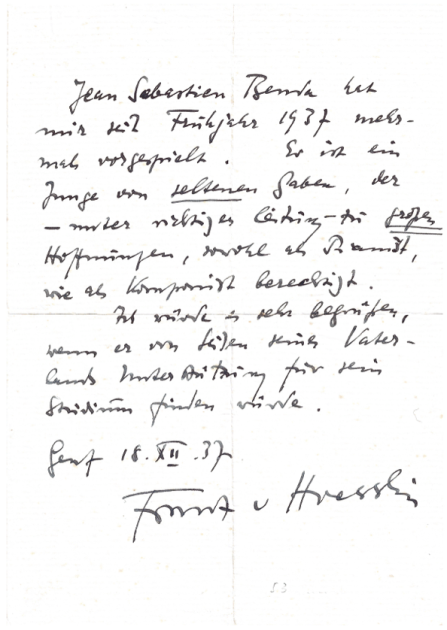 Jean Sebastien Benda hat
mir seit Frühjahr 1937 mehr-
mals vorgespielt. Er ist ein
Junge von seltenen Gaben, der
– unter richtiger Leitung – zu großen
Hoffnungen, sowohl als Pianist,
wie als Komponist berechtigt.
Ich würde es sehr begrüßen,
wenn er von Seiten seines Vater-
lands Unterstützung für sein
Studium finden würde.
Genf 18.XII.37
Franz v Hoesslin
53